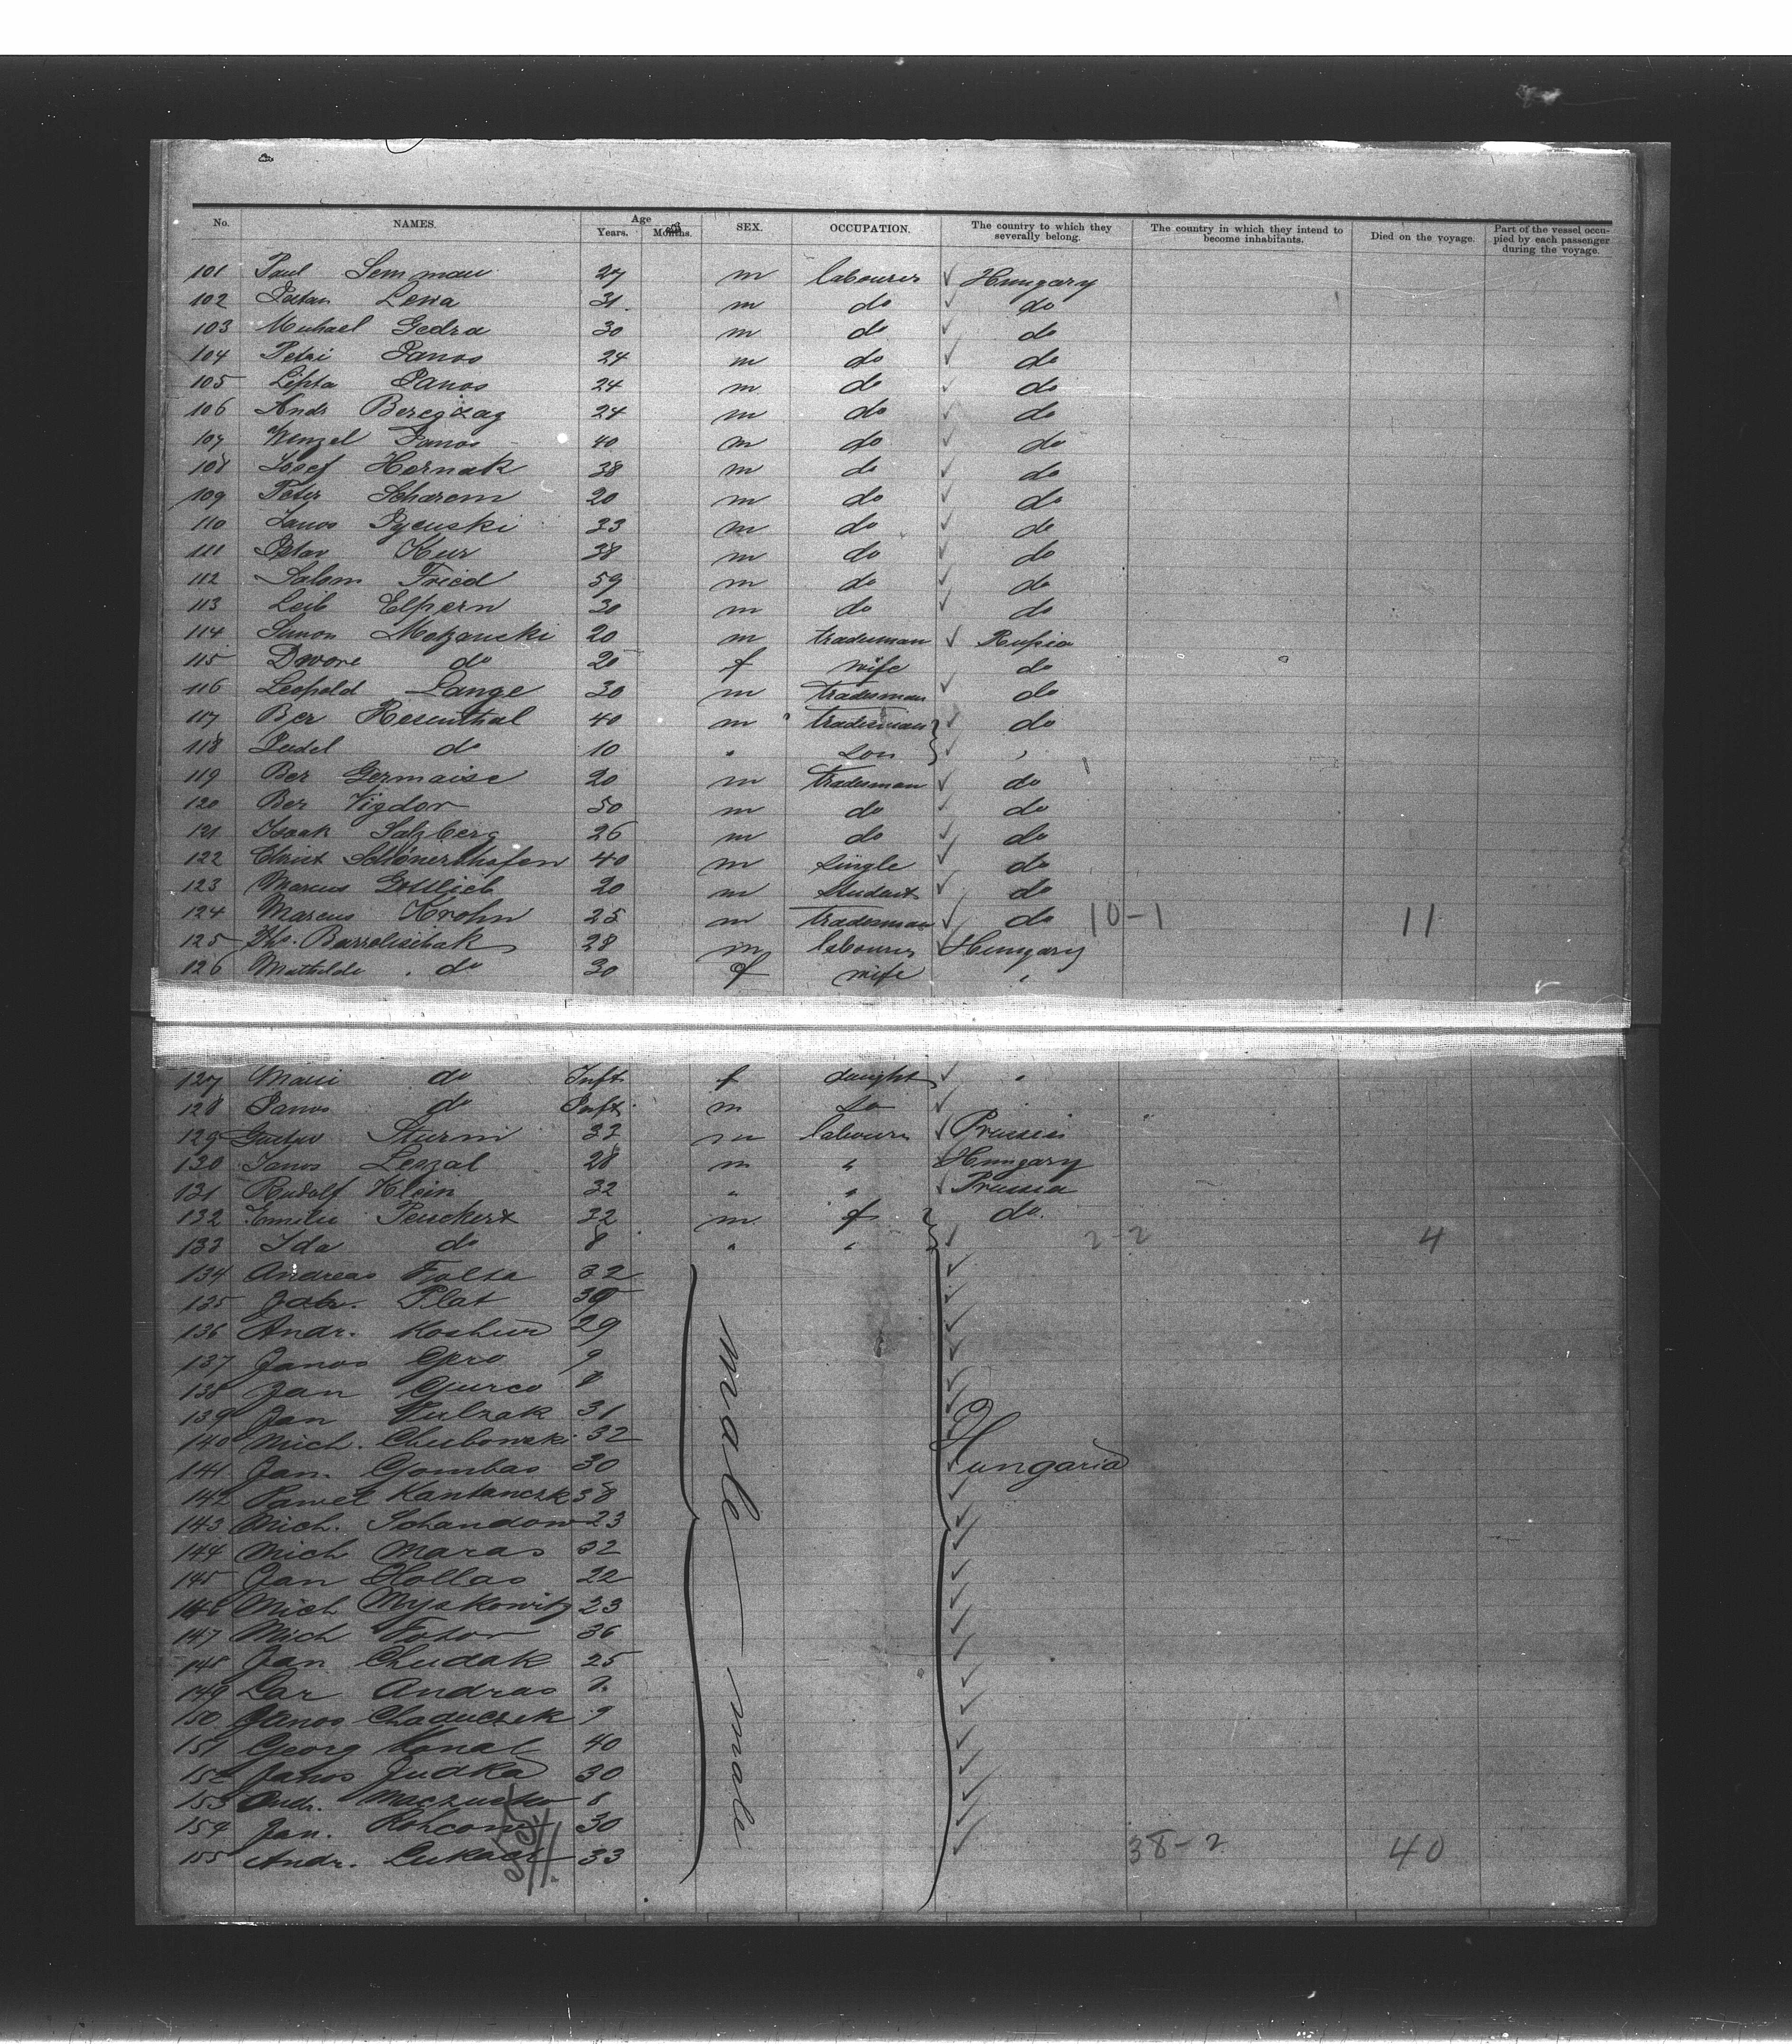 No. NAMES. Age Years. Months. SEX. OCCUPATION. The country to which they severally belong. The country in which they intend to become inhabitants. Died on the voyage. Part of the vessel occupied by each passenger during the voyage.
101 Paul Semman 27 m labourer ✓ Hungary
102 Lewa 31 m do ✓ do
103 Michael Gedra 30 m do ✓ do
104 Petri Janos 24 m do ✓ do
105 Lipta Janos 24 m do ✓ do
106 Andr Beregzag 24 m do ✓ do
107 Wenzel Janos 40 m do ✓ do
108 Josef Hornak 38 m do ✓ do
109 Peter Scharem 20 m do ✓ do
110 Janos 33 m do ✓ do
111 Kur 38 m do ✓ do
112 Salom Fried 59 m do ✓ do
113 Leib Elpern 30 m do ✓ do
114 Simon Motzanski 20 m tradesman ✓ Russia
115 Dwore do 20 f wife do
116 Leopold Lange 30 m tradesman ✓ do
117 Ber Rosenthal 40 m tradesman } ✓ do
118 Judel do 10 " son } ✓ "
119 Ber Germaise 20 m tradesman ✓ do
120 Ber Vigdor 50 m do ✓ do
121 Isaak Salzberg 26 m do ✓ do
122 Christ Schönershofen 40 m single ✓ do
123 Marcus Gottlieb 20 m student ✓ do
124 Marcus Krohn 25 m tradesman ✓ do 10-1 11
125 28 m labourer ✓ Hungary
126 Mathilde do 30 f wife "
127 Mari do Inft f daught ✓ "
128 Janos do Inft m so ✓
129 Gustav Sturm 33 m labourer ✓ Prussia
130 Janos Leszal 28 m " ✓ Hungary
131 Rudolf Klein 32 " " ✓ Prussia
132 Emilie Peuckert 32 m f } do.
133 Ida do 8 " " } ✓ 2-2 4
134 Andreas Folta 32 ✓
135 Plat 30 ✓
136 Andr. Koshur 29 ✓
137 Janos Gero 9 ✓
138 Jan Gurco 8 ✓
139 Jan Vulzak 31 ✓
140 Mich. Chubowski 32 ✓
male male
Hungaria
141 Jan. Gombas 30 ✓
142 Pawel Kantanczk 38 ✓
143 Mich. Schandow 23 ✓
144 Mich Maras 32 ✓
145 Jan Hollas 22 ✓
146 Mich Myskowitz 23 ✓
147 Mich Fotor 36 ✓
148 Jan Chudak 25 ✓
149 Lar Andras ✓
150 Janos Chaduczek 9 ✓
151 Georg Konal 40 ✓
152 Janos Judka 30 ✓
153 Andr. 8 ✓
154 Jan. 30 ✓
155 Andr. Lukacs 33 ✓ 38-2 40